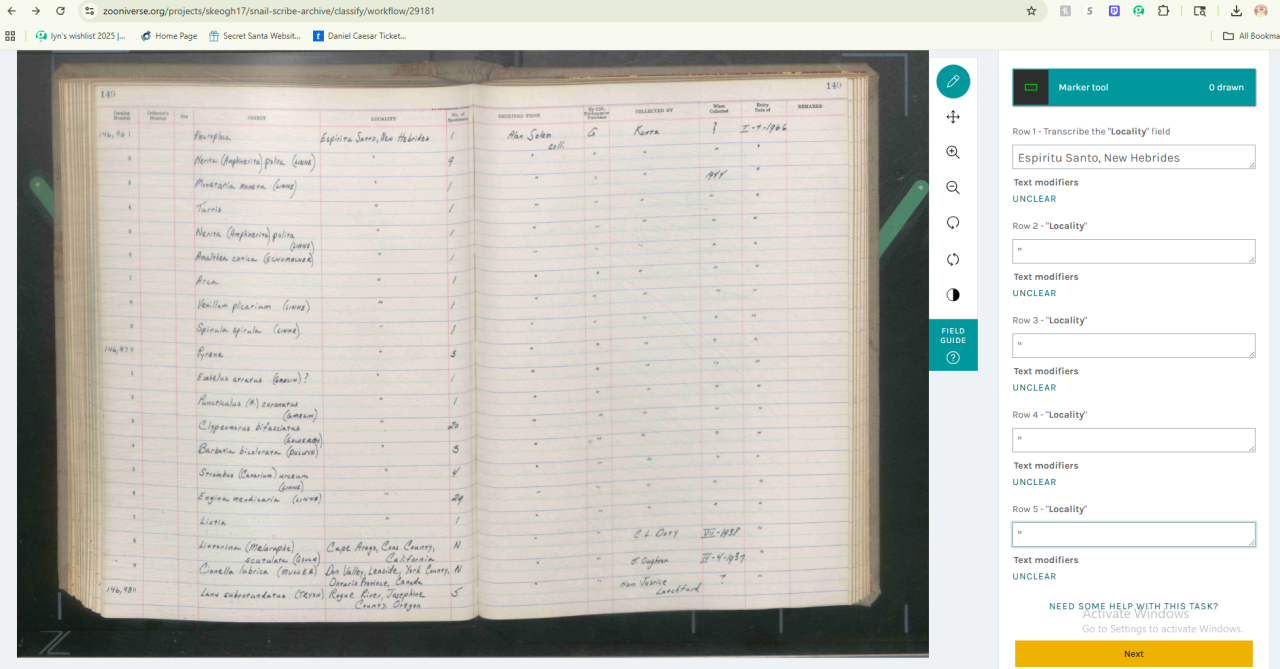 zooniverse.org/projects/skeogh17/snail-scribe-archive/classify/workflow/29181
lyn's wishlist 2025 |... Home Page Secret Santa Websit... Daniel Caesar Ticket... All Bookma
149 149
Catalog Number Collector's Number Sex OBJECT LOCALITY No. of Specimens RECEIVED FROM By Gift, Exchange or Purchase COLLECTED BY When Collected Entry Date of REMARKS
146,961 Espiritu Santo, New Hebrides 1 Alan Solem coll. G Kanta ? I-7-1966
2 Nerita (Amphinerita) polita (LINNE) " 9 " " " " "
3 Monetaria moneta (LINNE) " 1 " " " 1944 "
4 Turris " 1 " " " " "
5 Nerita (Amphinerita) polita (LINNE) " 1 " " " " "
6 Amalthea conica (SCHUMACHER) " 1 " " " " "
7 Arca " 1 " " " " "
8 Vexillum plicarium (LINNE) " 1 " " " " "
9 Spirula spirula (LINNE) " 1 " " " " "
146,970 Pyrene " 3 " " " " "
1 Euchelus atratus (GMELIN) ? " 1 " " " " "
2 Puncticulus (P.) coronatus (GMELIN) " 1 " " " " "
3 Clypeomorus bifasciatus (SOWERBY) " 20 " " " " "
4 Barbatia bicolorata (DILLWYN) " 3 " " " " "
5 Strombus (Canarium) urceum (LINNE) " 4 " " " " "
6 Engina mendicaria (LINNE) " 29 " " " " "
7 Liotia " 1 " " " " "
8 Littorina (Melaraphe) scutulata (GOULD) Cape Arago, Coos County, California N " " C.L. Doty VII-1938 "
9 Cionella lubrica (MULLER) Don Valley, Leaside, York County, Ontario Province, Canada N " " J. Oughton IV-4-1937 "
146,980 Lanx subrotundatus (TRYON) Rogue River, Josephine County, Oregon 5 " " Hon. Justice Latchford ? "
FIELD
GUIDE
Marker tool 0 drawn
Row 1 - Transcribe the "Locality" field
Espiritu Santo, New Hebrides
Text modifiers
UNCLEAR
Row 2 - "Locality"
"
Text modifiers
UNCLEAR
Row 3 - "Locality"
"
Text modifiers
UNCLEAR
Row 4 - "Locality"
"
Text modifiers
UNCLEAR
Row 5 - "Locality"
"
Text modifiers
UNCLEAR
NEED SOME HELP WITH THIS TASK?
Activate Windows
Go to Settings to activate Windows.
Next